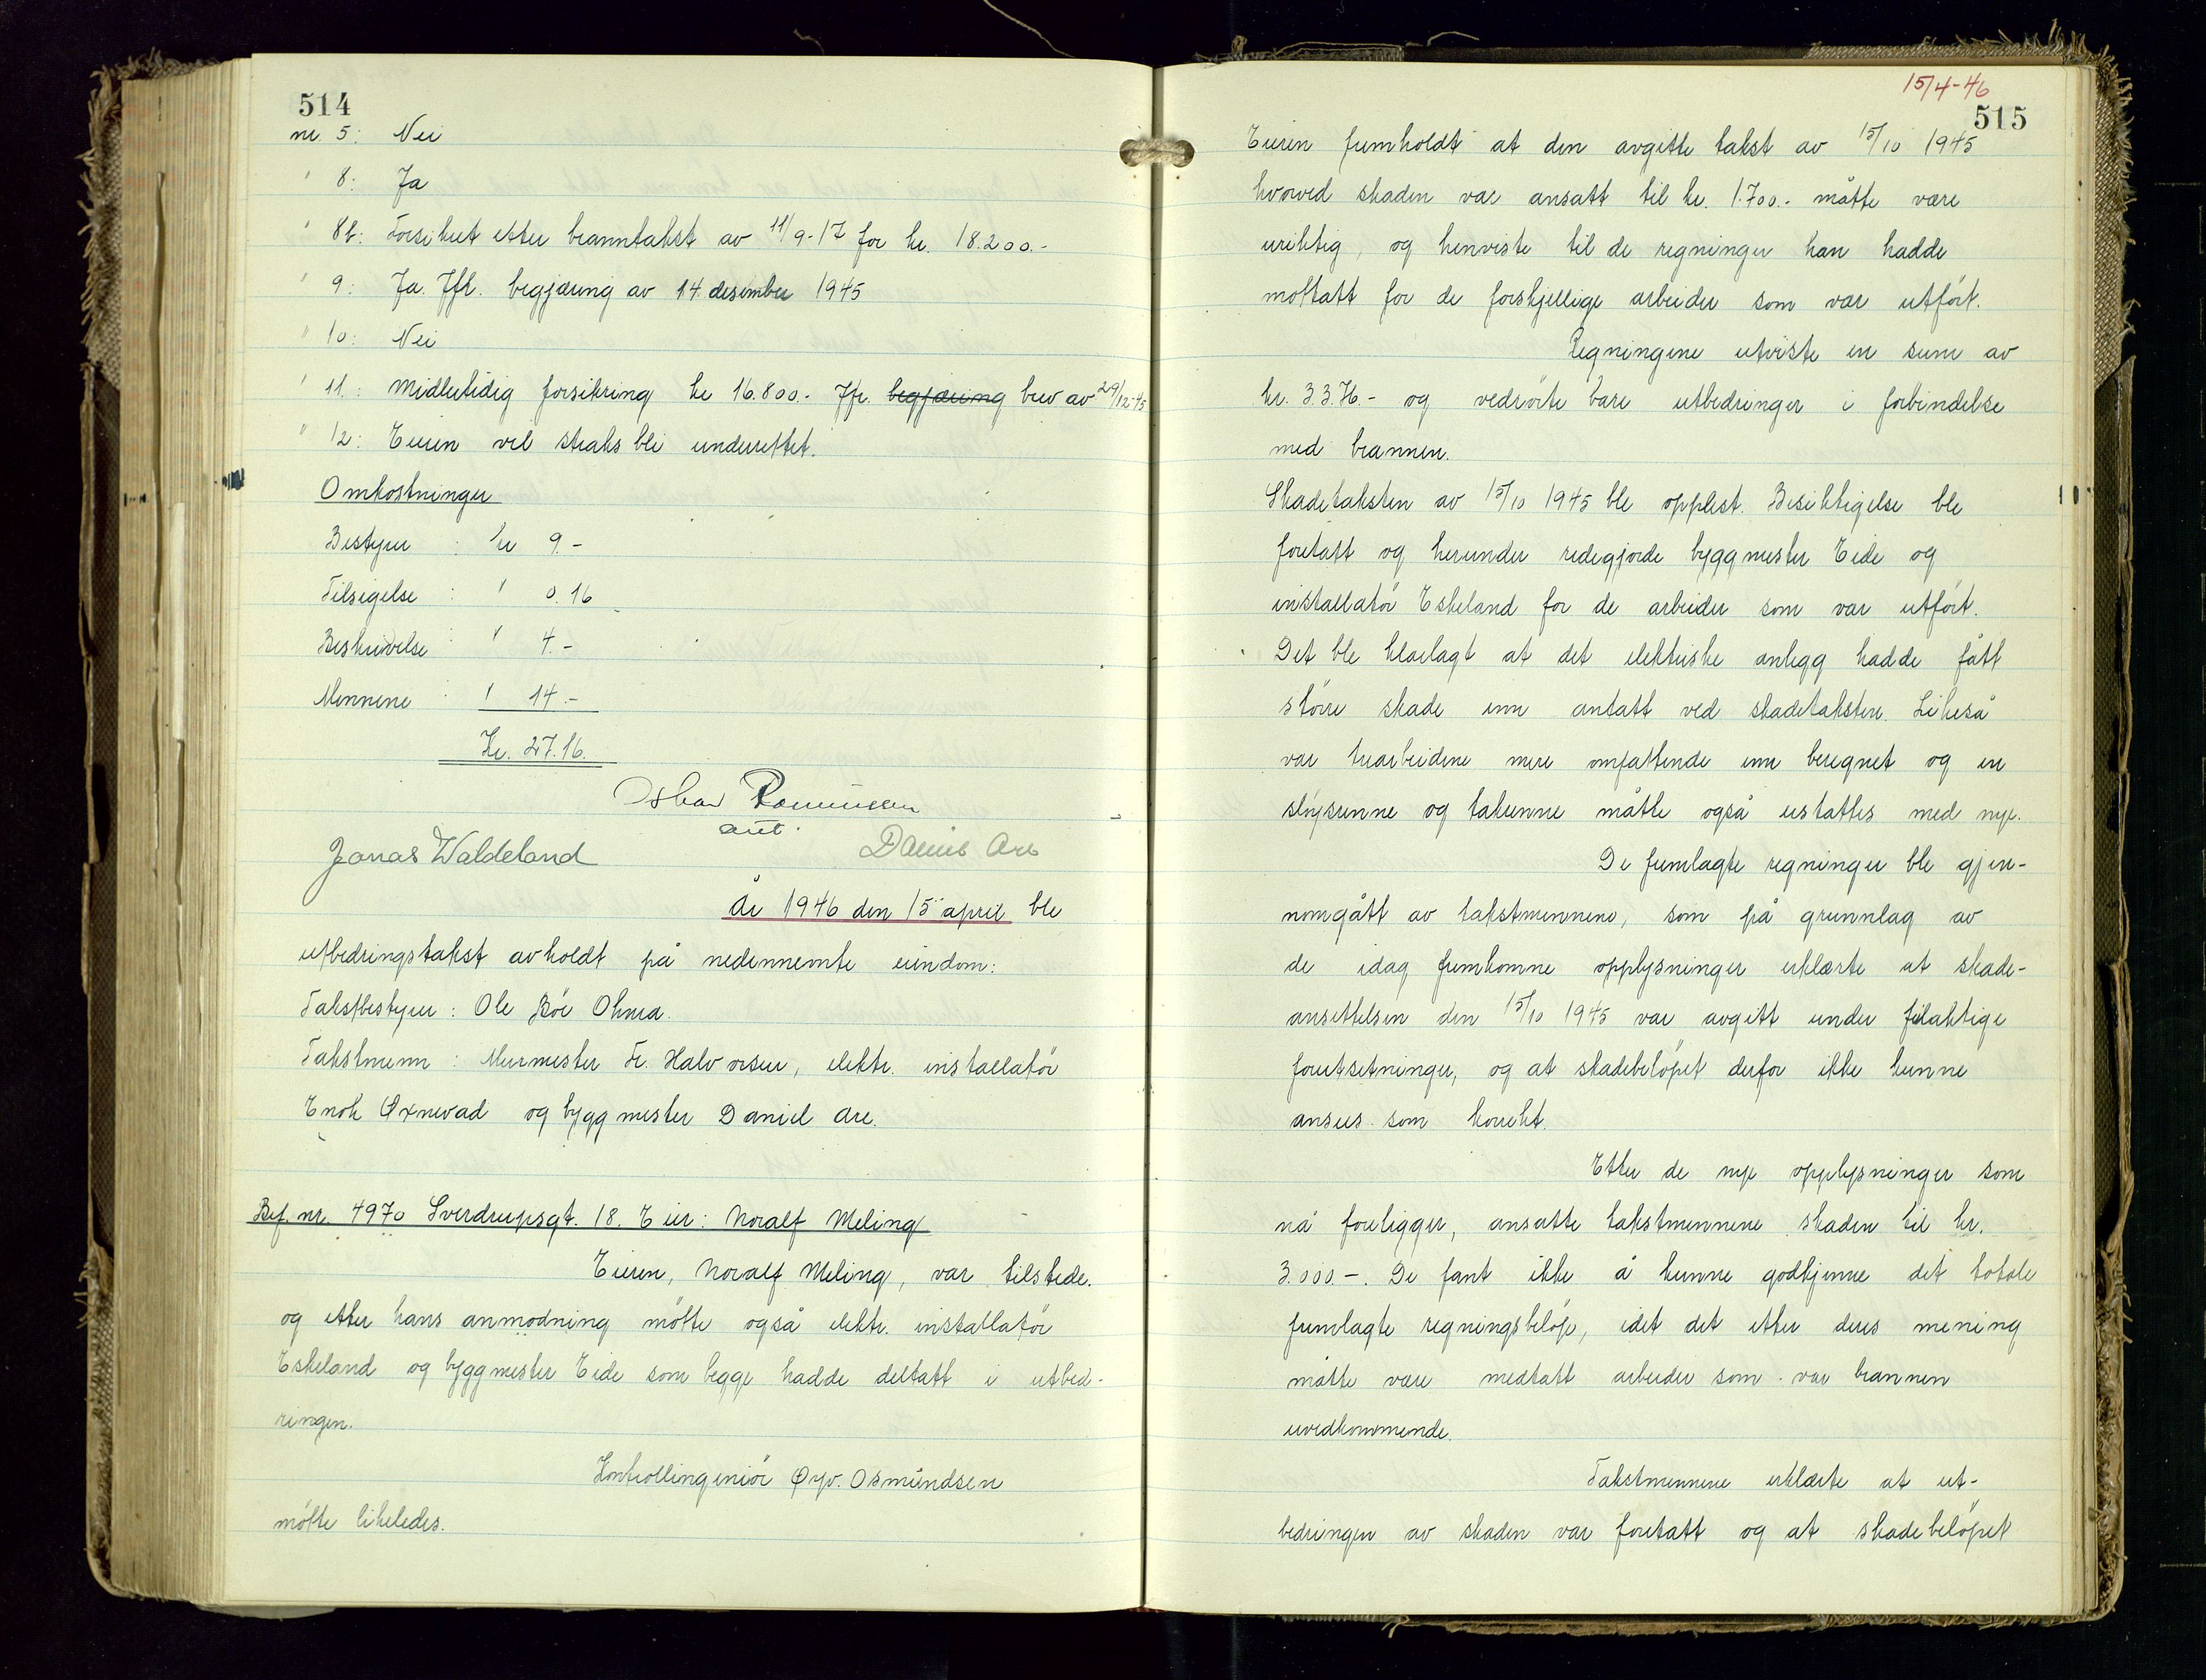 514
nr. 5: Nei
" 8: Ja
" 8b: Forsikret etter branntakst av 11/9-17 for kr. 18.200.-
" 9: Ja. Jfr. begjæring av 14 desember 1945
" 10: Nei
" 11: Midlertidig forsikring kr 16.800.- Jfr. begjæring brev av 29/12-45
" 12: Eieren vil straks bli underrettet.
Omkostninger
Bestyrer : kr 9.-
Tilsigelse : " 0.16
Beskrivelse : " 4.-
Mennene : " 14.-
Kr. 27.16.
Oskar Rasmussen
ass.
Jonas Waldeland Daniel Are
År 1946 den 15 april ble
utbedringstakst avholdt på nedennevnte eiendom:
Takstbestyrer: Ole Bøe Ohma.
Takstmenn: Murmester Fr. Halvorsen, elektr. installatör
Enok Øxnevad og byggmester Daniel Are.
Bef. nr. 4970 Sverdrupsgt. 18. Eier: Noralf Meling
Eieren, Noralf Meling, var tilstede.
og etter hans anmodning mötte også elektr. installatör
Eskeland og byggmester Eide som begge hadde deltatt i utbed-
ringen.
Kontrollingeniör Øyv. Osmundsen
mötte likeledes.
15/4-46
515
Eieren fremholdt at den avgitte takst av 15/10 1945
hvorved skaden var ansatt til kr. 1.700.- måtte være
uriktig, og henviste til de regninger han hadde
mottatt for de forskjellige arbeider som var utfört.
Regningene utviste en sum av
kr. 3.376.- og vedrörte bare utbedringer i forbindelse
med brannen.
Skadetaksten av 15/10 1945 ble opplest. Besiktigelse ble
foretatt og herunder redegjorde byggmester Eide og
installatör Eskeland for de arbeider som var utfört.
Det ble klarlagt at det elektriske anlegg hadde fått
större skade enn antatt ved skadetaksten. Likeså
var trearbeidene mere omfattende enn beregnet og en
slöysrenne og takrenne måtte også erstattes med nye.
De fremlagte regninger ble gjen-
nomgått av takstmennene, som på grunnlag av
de idag fremkomne opplysninger erklærte at skade-
ansettelsen den 15/10 1945 var avgitt under feilaktige
forutsetninger, og at skadebelöpet derfor ikke kunne
ansees som korrekt.
Etter de nye opplysninger som
nå foreligger, ansatte takstmennene skaden til kr.
3.000.-. De fant ikke å kunne godkjenne det totale
fremlagte regningsbelöp, idet det etter deres mening
måtte være medtatt arbeider som var brannen
uvedkommende.
Takstmennene erklærte at ut-
bedringen av skaden var foretatt og at skadebelöpet